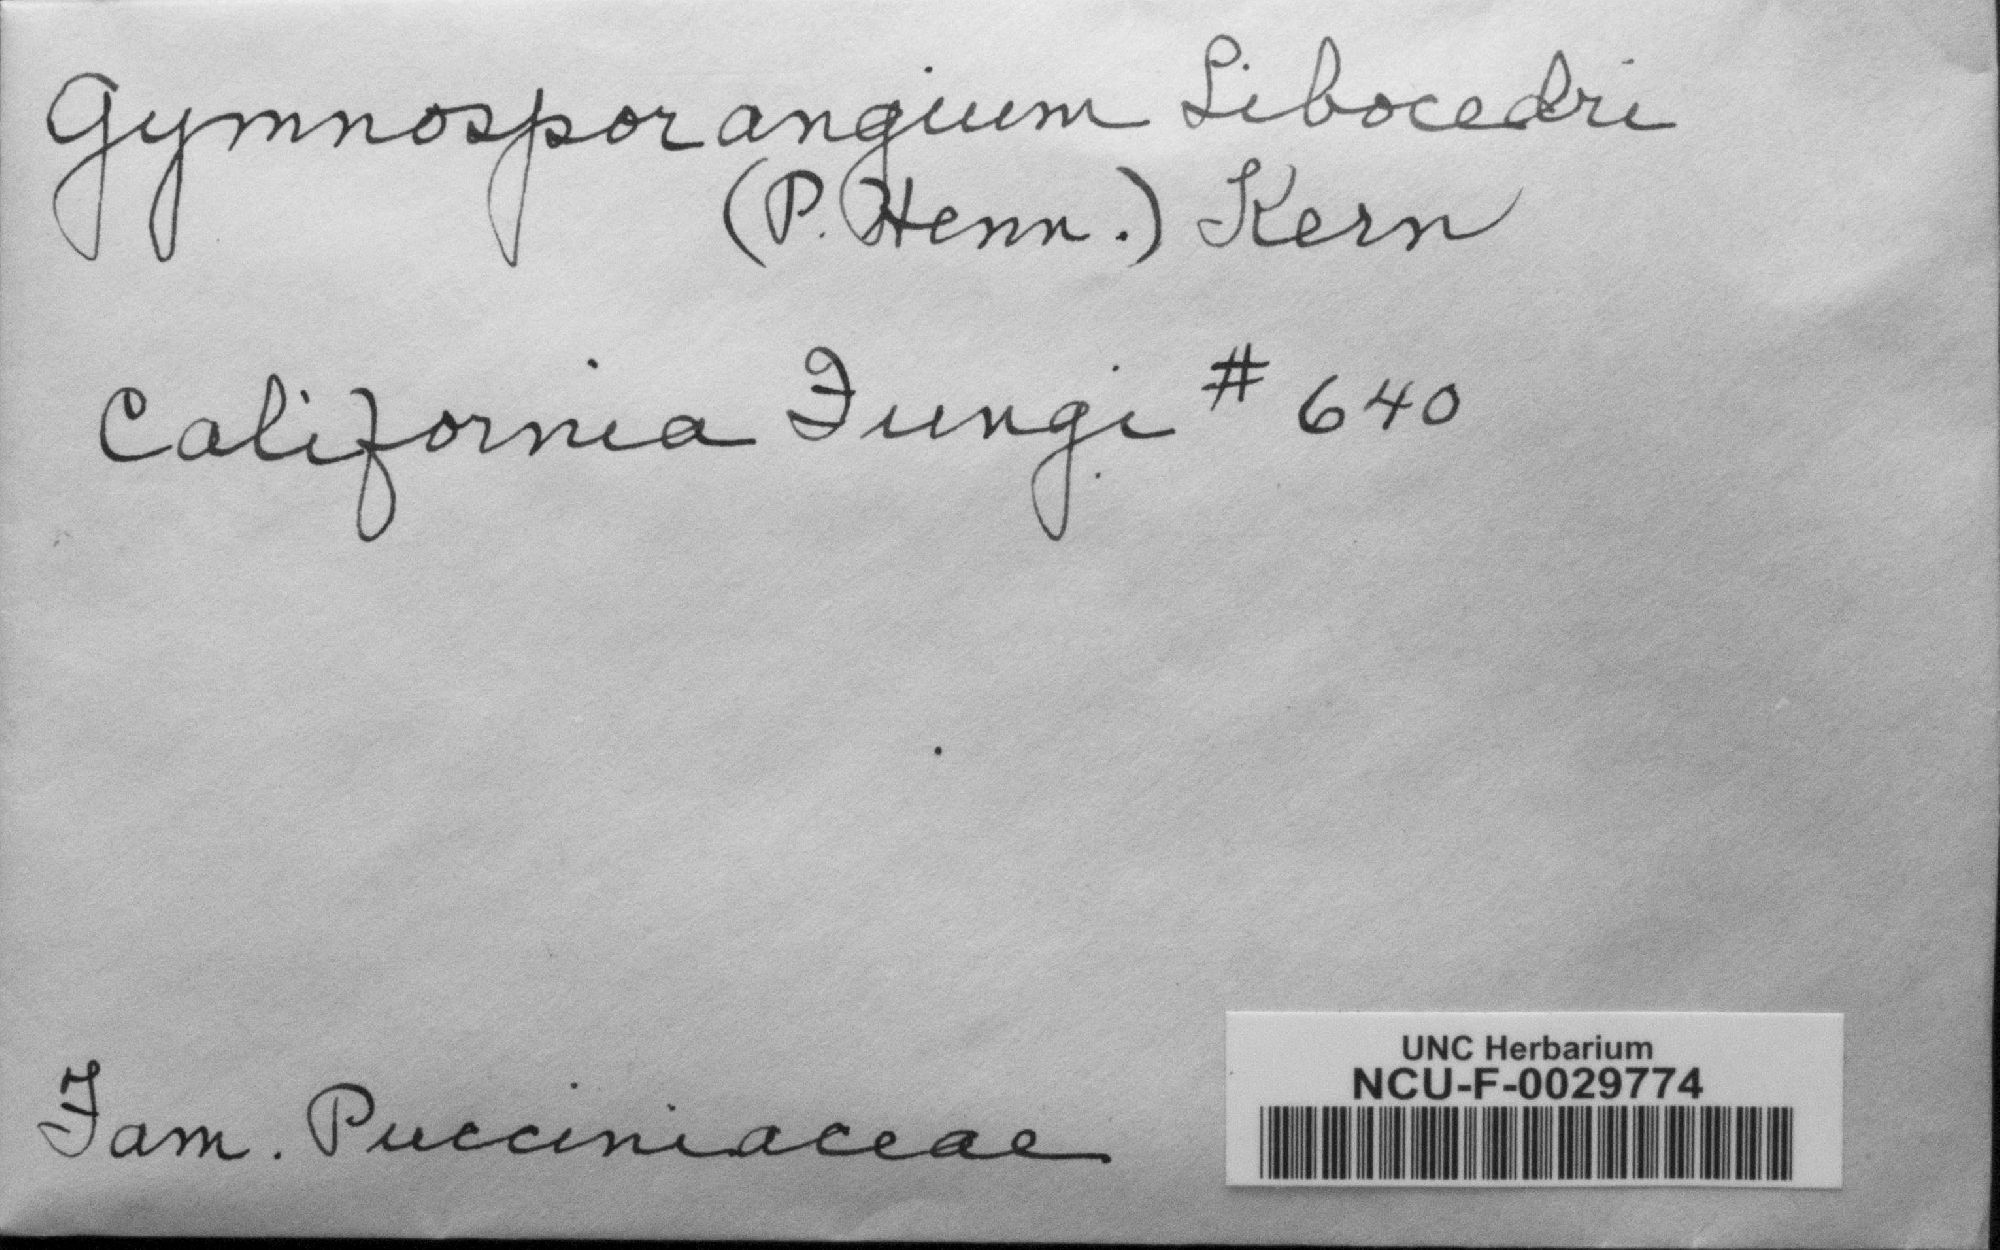 Gymnosporangium Libocedri
(P. Henn.) Kern
California Fungi # 640
Fam. Pucciniaceae
UNC Herbarium
NCU-F-0029774